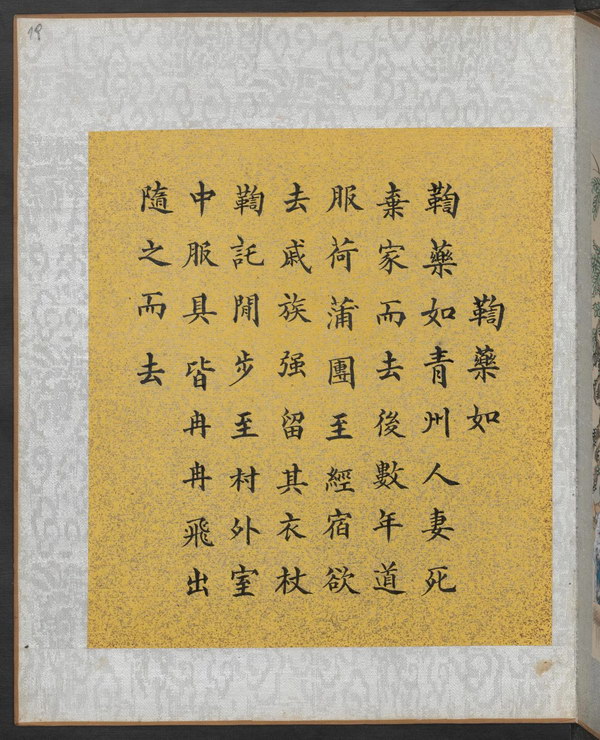 19
鞫藥如
鞫藥如青州人妻死
棄家而去後數年道
服荷蒲團至經宿欲
去戚族强留其衣杖
鞫託閒步至村外室
中服具皆冉冉飛出
隨之而去